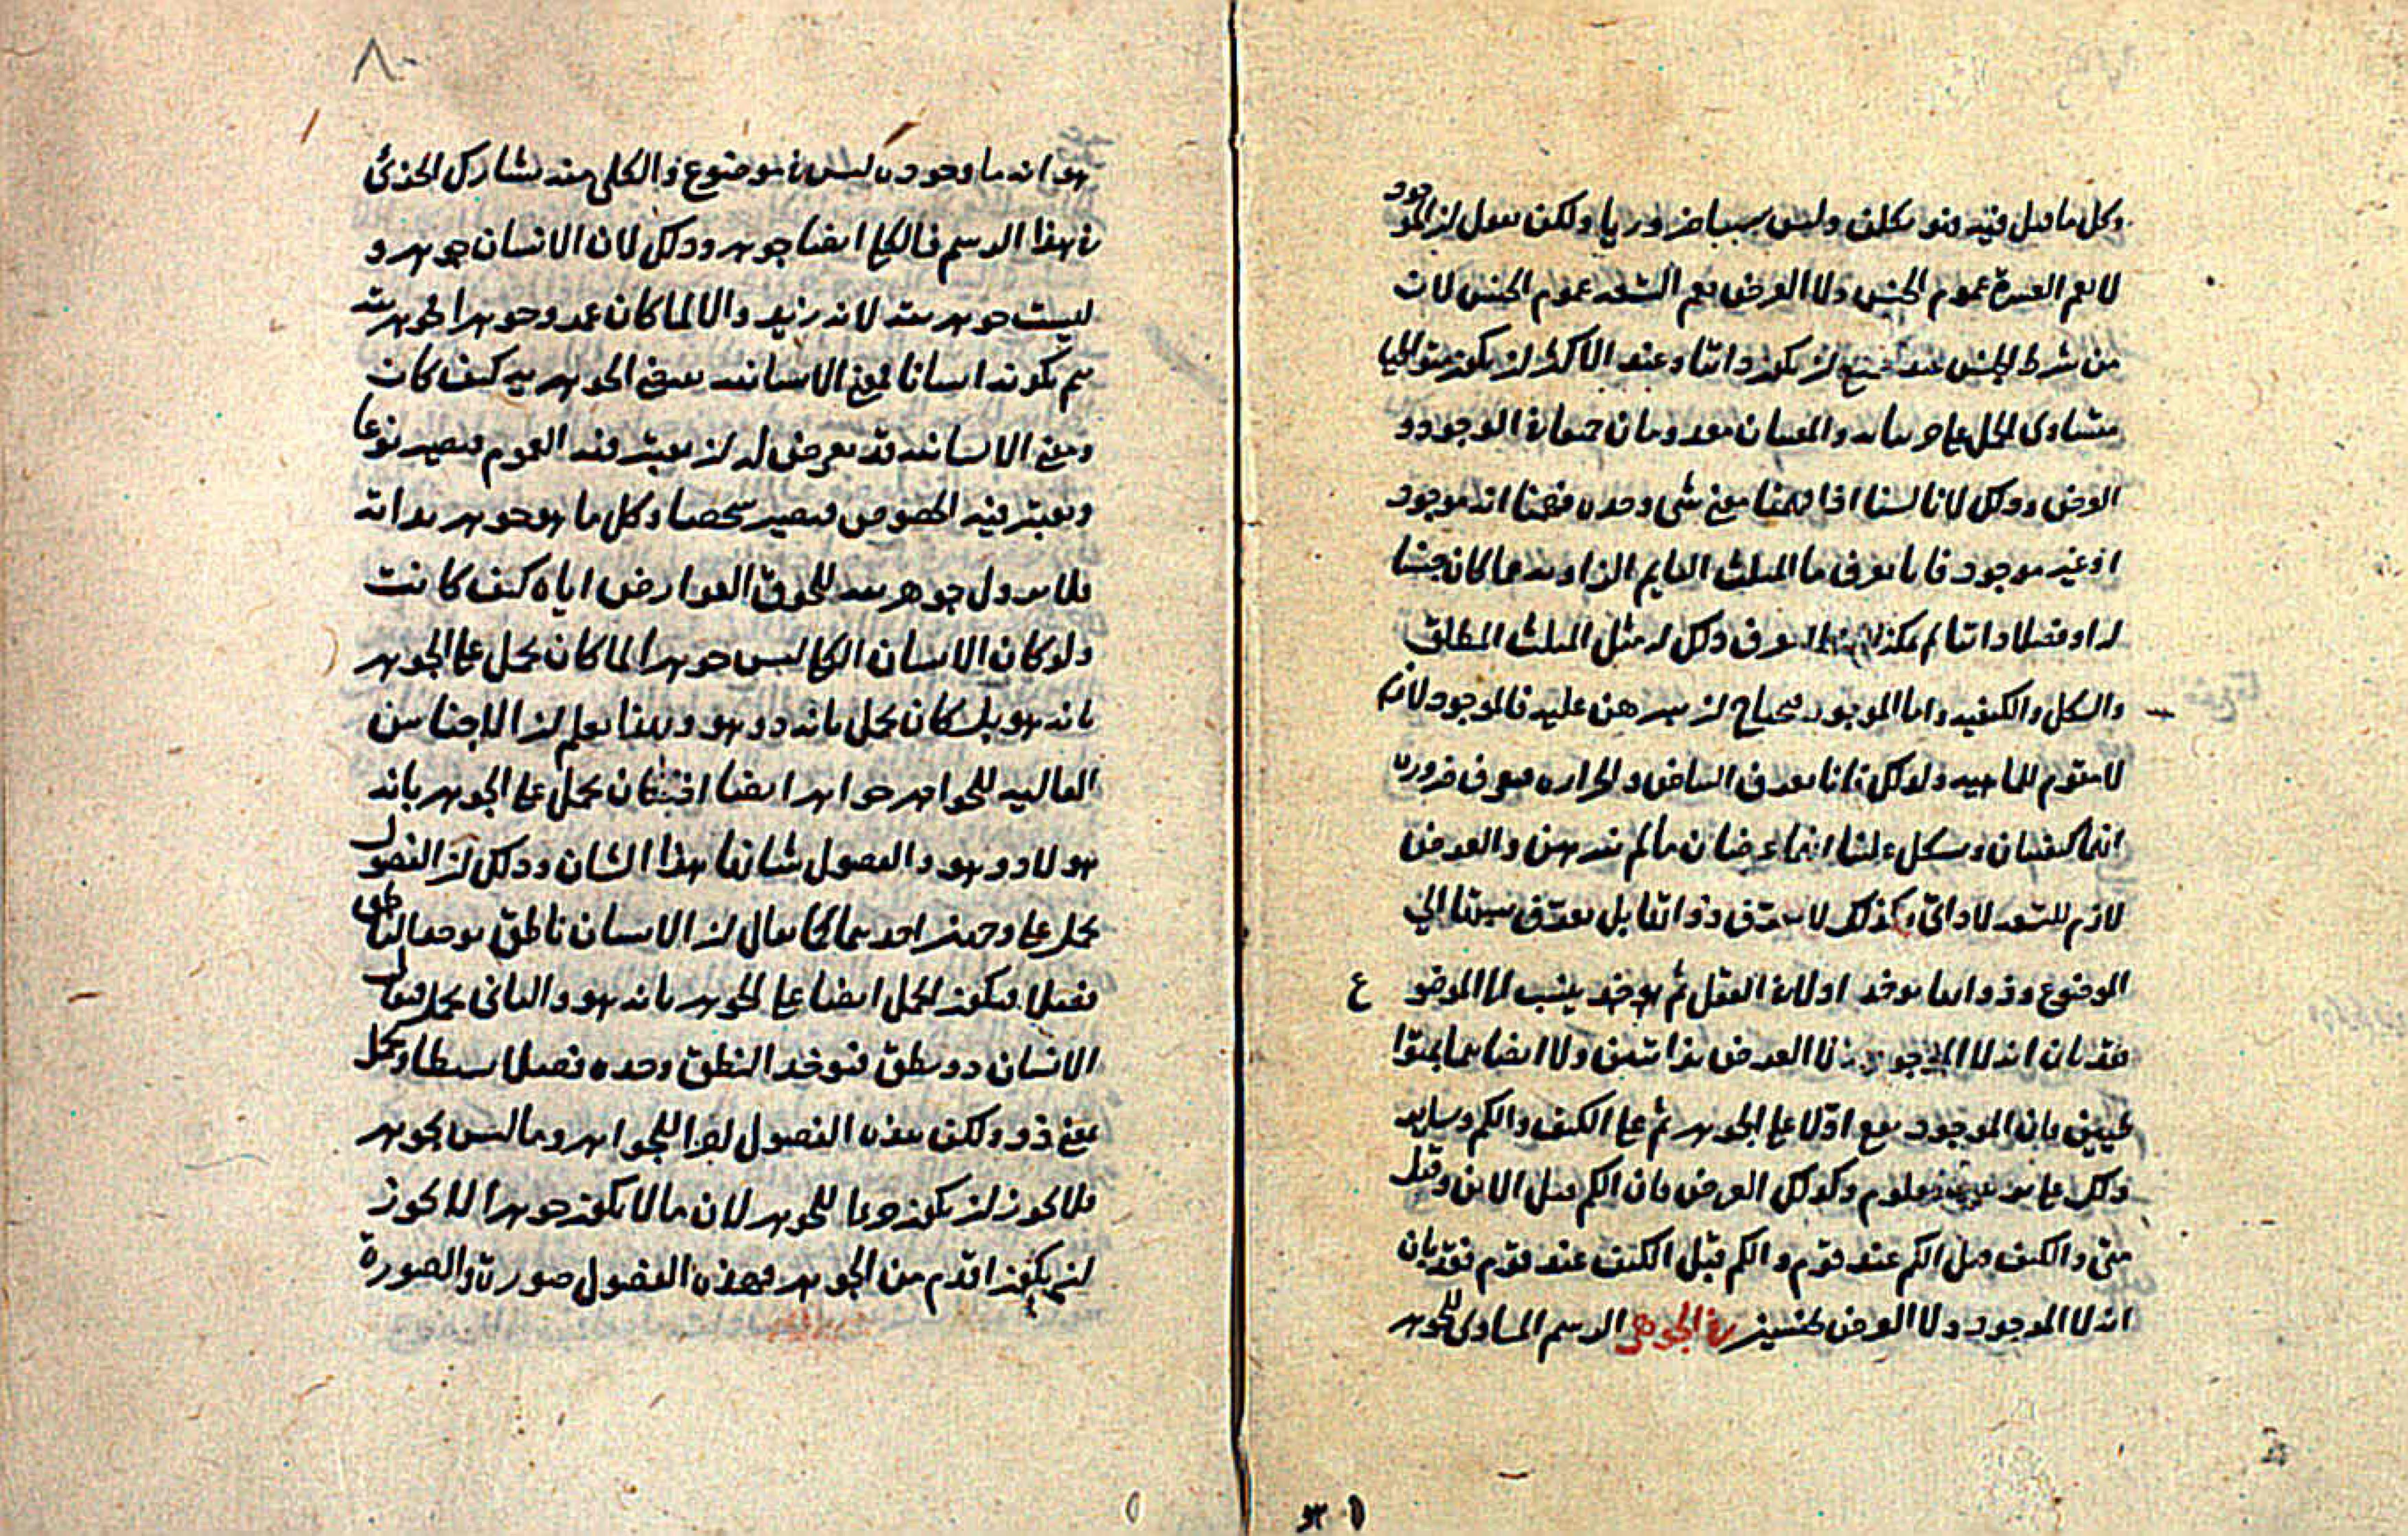 وكل ما قيل فيه فهو تكلف وليس سببا ضروريا ولكن نقول ان الموجود
لا يعم العشرة عموم الجنس ولا العرض يعم التسعة عموم الجنس لان
من شرط الجنس عند ان يكون ذاتيا وعند الاكثر ان يكون متواطيا
متساوى الحمل على جزئياته والمعنيان معدومان جميعا فى الوجود و
العرض وذلك لانا لسنا اذا فهمنا معنى شى وحده فهمنا انه موجود
او غير موجود فانا نعرف ما المثلث القايم الزاوية مما كان جنسا
له او فصلا ذاتيا لم يمكن ان نعرف ذلك له مثل المثلث المطلق
والشكل والكيفية واما الموجود فيحتاج ان يبرهن عليه فالموجود لازم
لا مقوم للماهية ولذلك فانا نعرف البياض والحرارة فنعرف ضرورة
انها كيفيتان ويشكل علينا انهما عرضان ما لم نبرهن والعرض
لازم للتسعة لا ذاتى وكذلك لا يعرف ذواتها بل يعرف نسبتها الى
الموضوع وذواتها يوخذ اولا فى العقل ثم يوخذ ينسب الى الموضو ع
فقد بان انه لا الموجود ولا العرض بذاتيين ولا ايضا هما بمتوا
طيين فان الموجود يقع اولا على الجوهر ثم على الكيف والكم وسايره
وذلك على معلوم وكذلك العرض فان الكم قبل الاين وقبل
متى والكيف قبل الكم عند قوم والكم قبل الكيف عند قوم فقد بان
انه لا الموجود ولا العرض بجنسين فى الجوهر الرسم المساوى للجوهر
٨٠
هو انه ما وجوده ليس فى موضوع والكلى منه يشارك الجزئى
فى هذا الرسم فالكلى ايضا جوهر وذلك لان الانسان جوهر و
ليست جوهريته لانه زيد والا لما كان عمرو جوهرا لجوهريته
ثم بكونه انسانا فمعنى الانسانية معنى الجوهرية كيف كان
ومعنى الانسانية قد يعرض له ان يعتبر فيه العموم فيصير نوعا
ويعتبر فيه الخصوص فيصير شخصا وكل ما هو جوهر بذاته
فلا يزول جوهريته للحوق العوارض اياه كيف كانت
ولو كان الانسان الكلى ليس جوهرا لما كان يحمل على الجوهر
بانه هو بل كان يحمل بانه ذو هو وبهذا يعلم ان الاجناس
العالية للجواهر جواهر ايضا اذ كان يحمل على الجوهر بانه
هو لا ذو هو والفصول شانها هذا الشان وذلك ان الفصول
يحمل على وجهين احدهما كما يقال ان الانسان ناطق يوخذ الناطق
فصلا فيكون الحمل ايضا على الجوهر بانه هو والثانى يحمل فيقال
الانسان ذو نطق فيوخذ النطق وحده فصلا بسيطا ويحمل
معنى ذو ولكن هذه الفصول اجزا للجواهر وما ليس بجوهر
فلا يجوز ان يكون جزءا للجوهر لان ما لا يكون جوهرا لا يجوز
ان يكون اقدم من الجوهر فهذه الفصول صورة والصورة